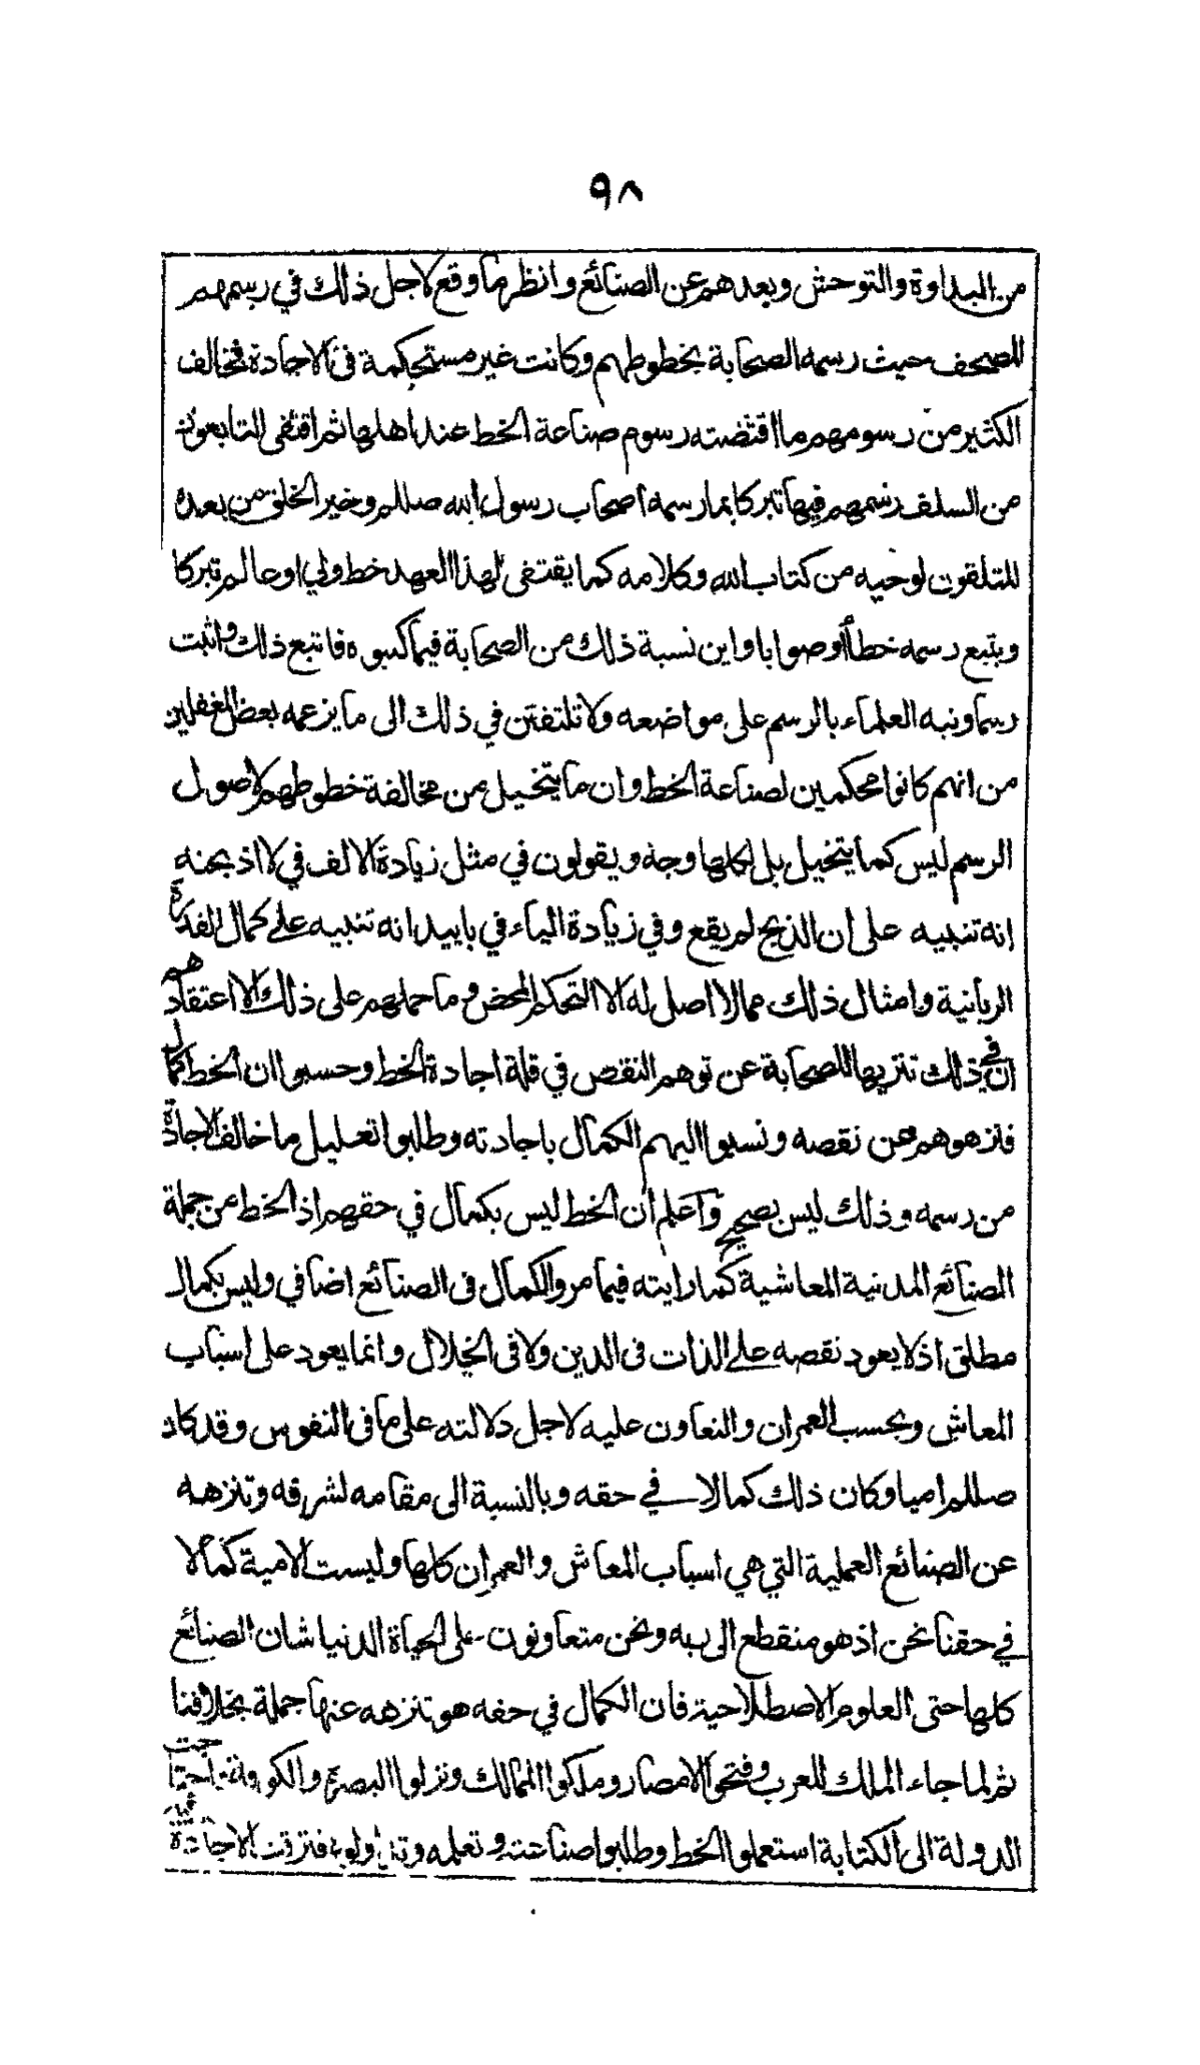 ٩٨
من البداوة والتوحش وبعدهم عن الصنائع وانظر ما وقع لاجل ذلك في رسمهم
المصحف حيث رسمه الصحابة بخطوطهم وكانت غير مستحكمة فى الاجادة فخالف
الكثير من رسومهم ما اقتضته رسوم صناعة الخط عند اهلها ثم اقتفى التابعون
من السلف رسمهم فيها تبركا بما رسمه اصحاب رسول الله صللم وخير الخلق من بعده
المتلقون لوحيه من كتاب الله وكلامه كما يقتفى لهذا العهد خط ولي او عالم تبركا
ويتبع رسمه خطأ أوصوابا واين نسبة ذلك من الصحابة فيما كتبوه فاتبع ذلك واثبت
رسما ونبه العلماء بالرسم على مواضعه ولا تلتفتن في ذلك الى ما يزعمه بعض المغفلين
من انهم كانوا محكمين لصناعة الخط وان ما يتخيل من مخالفة خطوطهم لاصول
الرسم ليس كما يتخيل بل لكلها وجه ويقولون في مثل زيادة الالف في لا اذبحنه
انه تنبيه على ان الذبح لم يقع وفي زيادة الياء في باييد انه تنبيه على كمال القدرة
الربانية وامثال ذلك مما لا اصل له الا التحكم المحض وما حملهم على ذلك الا اعتقادهم
ان في ذلك تنزيها للصحابة عن توهم النقص في قلة اجادة الخط وحسبوا ان الخط كمال
فنزهوهم عن نقصه ونسبوا اليهم الكمال باجادته وطلبوا تعليل ما خالف الاجادة
من رسمه وذلك ليس بصحيح واعلم ان الخط ليس بكمال في حقهم اذ الخط من جملة
الصنائع المدنية المعاشية كما رايته فيما مر والكمال فى الصنائع اضافي وليس بكمال
مطلق اذ لا يعود نقصه على الذات فى الدين ولا فى الخلال وانما يعود على اسباب
المعاش وبحسب العمران والتعاون عليه لاجل دلالته على ما فى النفوس وقد كان
صللم اميا وكان ذلك كمالا في حقه وبالنسبة الى مقامه لشرفه وتنزهه
عن الصنائع العملية التي هي اسباب المعاش والعمران كلها وليست الامية كمالا
في حقنا نحن اذ هو منقطع الى ربه ونحن متعاونون على الحياة الدنيا شان الصنائع
كلها حتى العلوم الاصطلاحية فان الكمال في حقه هو تنزهه عنها جملة بخلافنا
ثم لما جاء الملك للعرب وفتحوا الامصار وملكوا الممالك ونزلوا البصرة والكوفة واحتاجت
الدولة الى الكتابة استعملوا الخط وطلبوا صناعته وتعلمه وتداولوه فترقت الاجادة